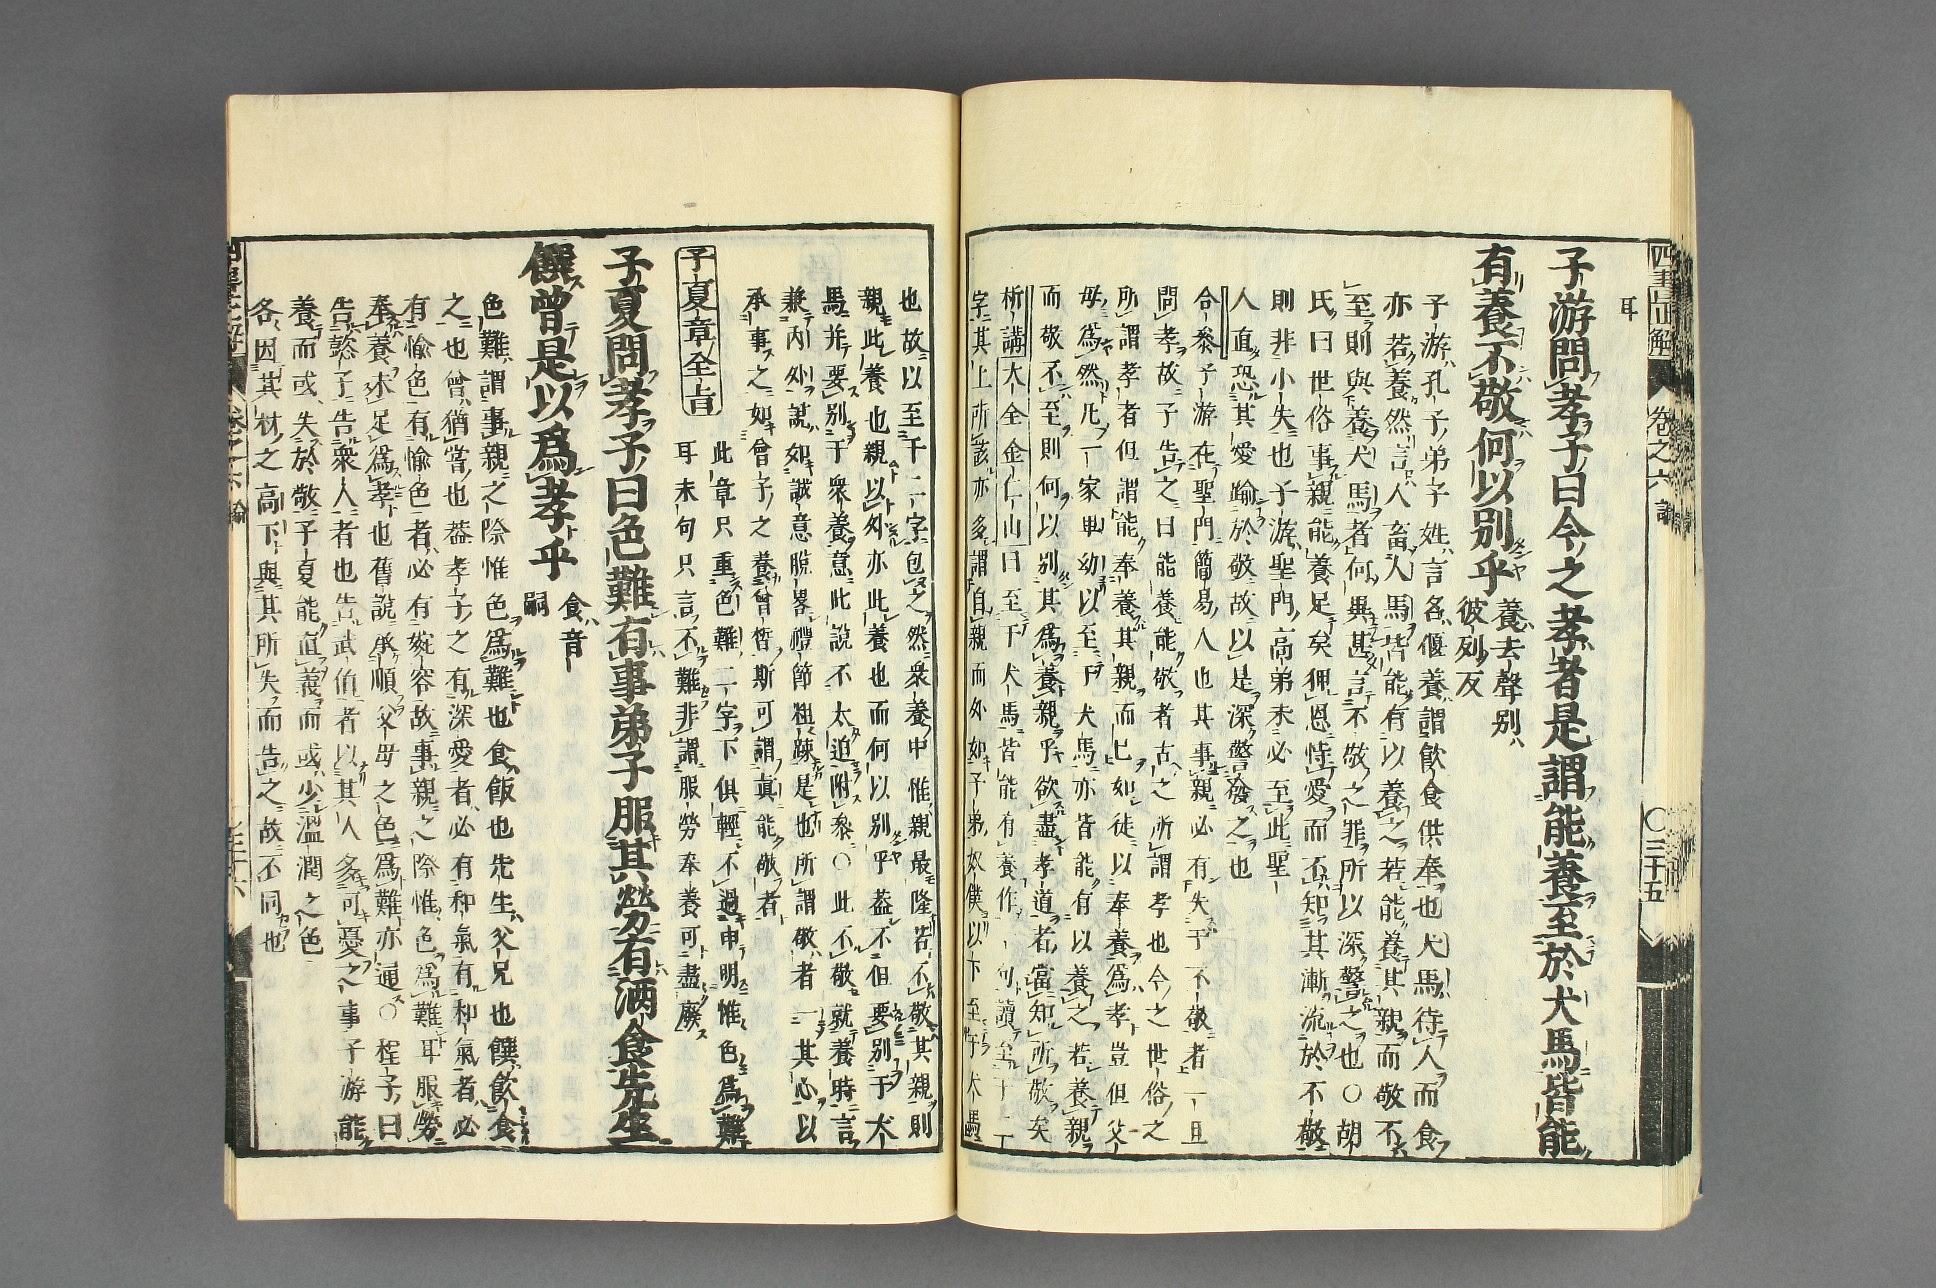 四書正解 卷之六 論 〇三十五
耳
子游問孝子曰今之孝者是謂能養至於犬馬皆能
有養不敬何以別乎 養去聲別
彼列反
子游孔子弟子姓言名偃養謂飲食供奉也犬馬待人而食
亦若養然言人畜犬馬皆能有以養之若能養其親而敬不
至則與養犬馬者何異甚言不敬之罪所以深警之也〇胡
氏曰世俗事親能養足矣狎恩恃愛而不知其漸流於不敬
則非小失也子游聖門高弟未必至此聖
人直恐其愛踰於敬故以是深警發之也
合參子游在聖門簡易人也其事親必有失于不敬者一旦
問孝故子告之曰能養能敬者古之所謂孝也今之世俗之
所謂孝者但謂能奉養其親而已如徒以奉養為孝豈但父
母為然凡一家卑幼以至下犬馬亦皆能有以養之若養親
而敬不至則何以別其為養親乎欲盡孝道者當知所敬矣
析講大全金仁山曰至于犬馬皆能有養作一句讀至于二
字其上所該亦多謂自親而外如子弟奴僕以下至于犬馬
也故以至于二字包之然衆養中惟親最隆若不敬其親則
親此養也親以外亦此養也而何以別乎蓋不但要別于犬
馬并要別于衆養意此說不太迫附參〇此不敬就養時言
兼內外說如誠意脫畧禮節粗踈是也所謂敬者一其心以
承事之如曾子之養曾晳斯可謂眞能敬者
子夏章全旨
此章只重色難二字下俱輕不過申明惟色為難
耳末句只言不難非謂服勞奉養可盡廢
子夏問孝子曰色難有事弟子服其勞有酒食先生
饌曾是以爲孝乎 食音
嗣
色難謂事親之際惟色為難也食飯也先生父兄也饌飲食
之也曾猶嘗也蓋孝子之有深愛者必有和氣有和氣者必
有愉色有愉色者必有婉容故事親之際惟色為難耳服勞
奉養未足為孝也舊說承順父母之色為難亦通〇程子曰
告懿子告衆人者也告武伯者以其人多可憂之事子游能
養而或失於敬子夏能直義而或少溫潤之色
各因其材之高下與其所失而告之故不同也